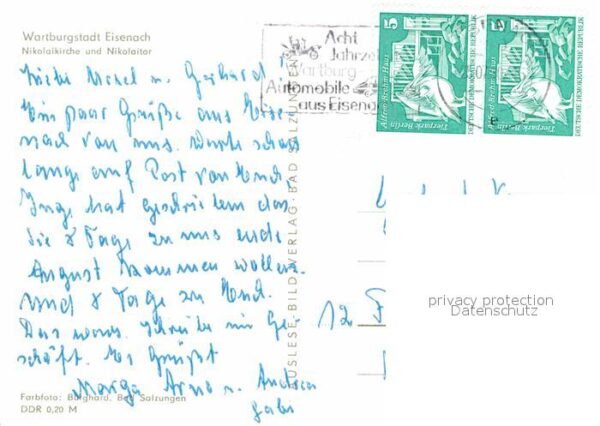 Wartburgstadt Eisenach
Nikolaikirche und Nikolaitor
Acht
Jahrze
Wartburg
Automobile
aus Eisena
5
5
Alfred-Brehm-Haus
Tierpark Berlin
DEUTSCHE DEMOKRATISCHE REPUBLIK
Alfred-Brehm-Haus
Tierpark Berlin
DEUTSCHE DEMOKRATISCHE REPUBLIK
Gerhard
Ein paar Grüße aus Eise
nach von uns. warte schon
lange auf Post von
Inge hat geschrieben das
sie 8 Tage zu uns ende
August kommen wollen
und 8 Tage zu
Das wars. Schreibe mir
Es Grüßt
Marga Arno u. Andrea
12
AUSLESE-BILD-VERLAG · BAD SALZUNGEN
privacy protection
Datenschutz
Farbfoto: Burghard, Bad Salzungen
DDR 0,20 M